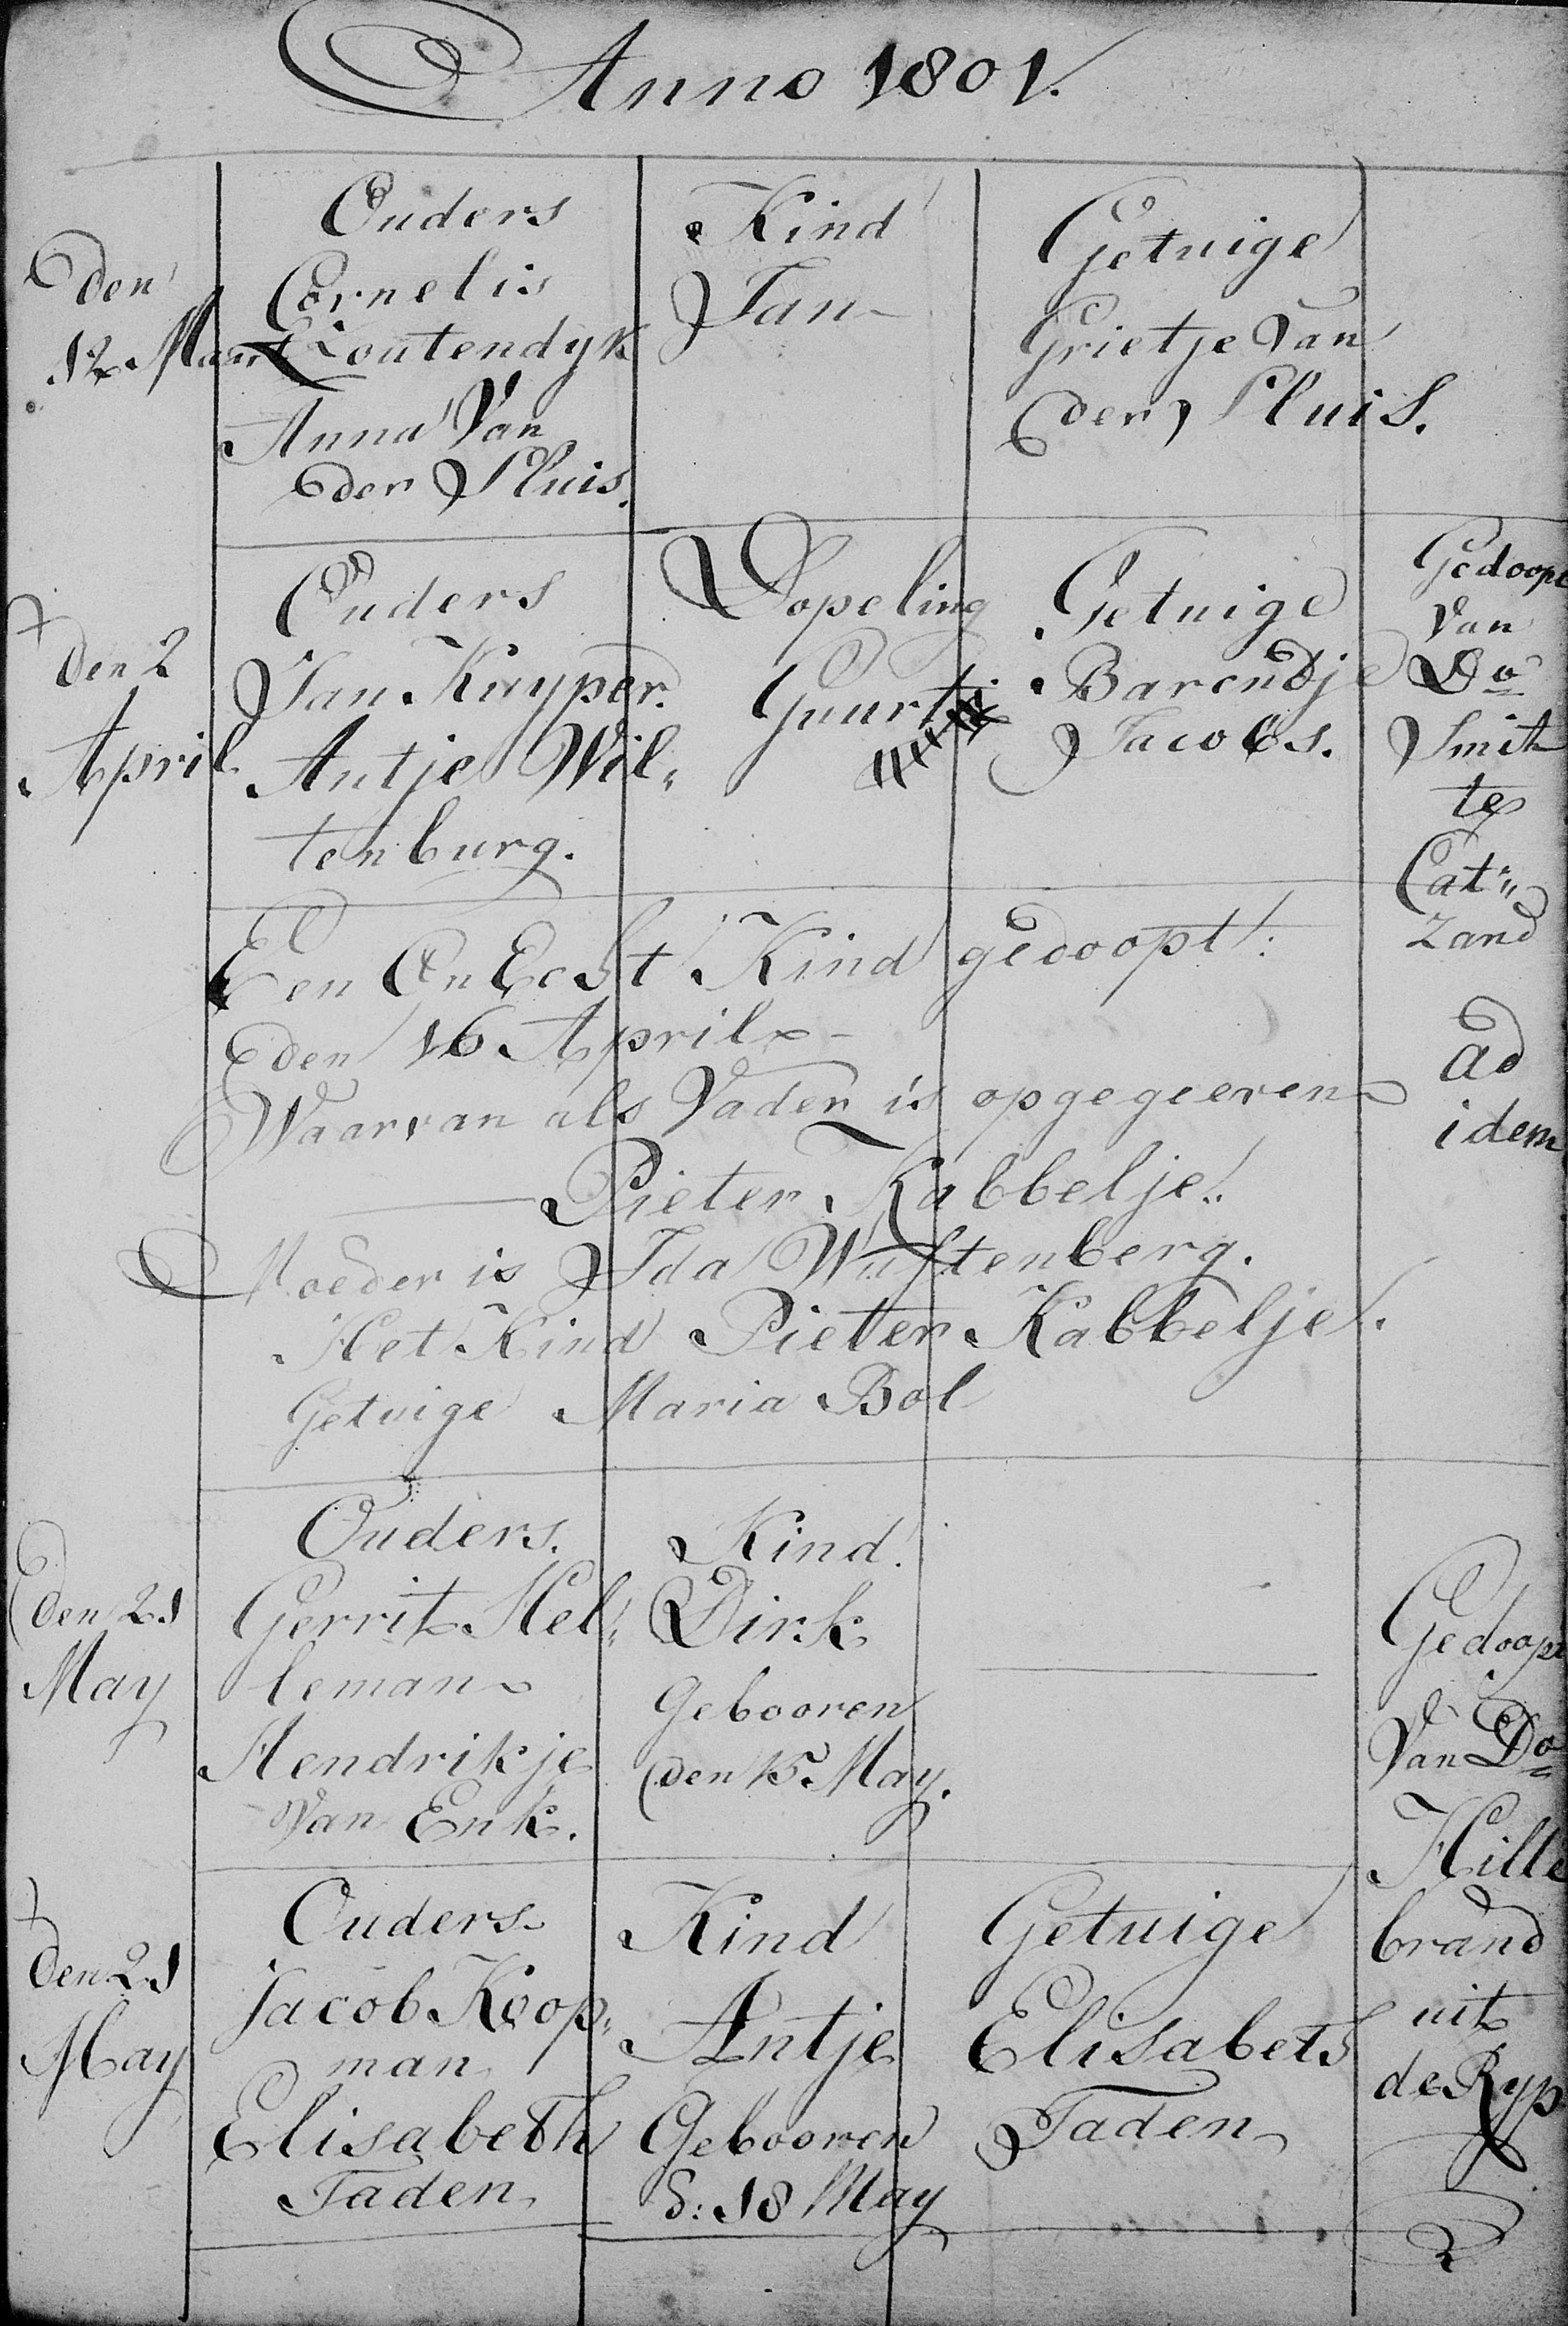 Anno 1801.
den
12 Maart
Ouders
Cornelis
Zoutendyk
Anna Van
der Sluis.
Kind
Jan
Getuige
Grietje Van
der Sluis.
den 2
April
Ouders
Jan Kuyper.
Antje Wil„
tenburg.
Dopeling
Guurtj
Getuige
Barendje
Jacobs.
Gedoopt
Van
Do
Smit
te
Cat„
zand
Een On Echt Kind gedoopt.
den 16 April
Waarvan als Vader is opgegeeven
Pieter Kabbelje.
Moeder is Ida Wuftenberg.
Het Kind Pieter Kabbelje.
Getuige Maria Bol
ad
idem
den 21
May
Ouders.
Gerrit Hel„
leman
Hendrikje
Van Enk.
Kind.
Dirk
Gebooren
den 15 May.
Gedoopt
Van Do
Hille
brand
uit
de Ryp
den 21
May
Ouders
Jacob Koop„
man
Elisabeth
Taden
Kind
Antje
Gebooren
d: 18 May
Getuige
Elisabeth
Taden